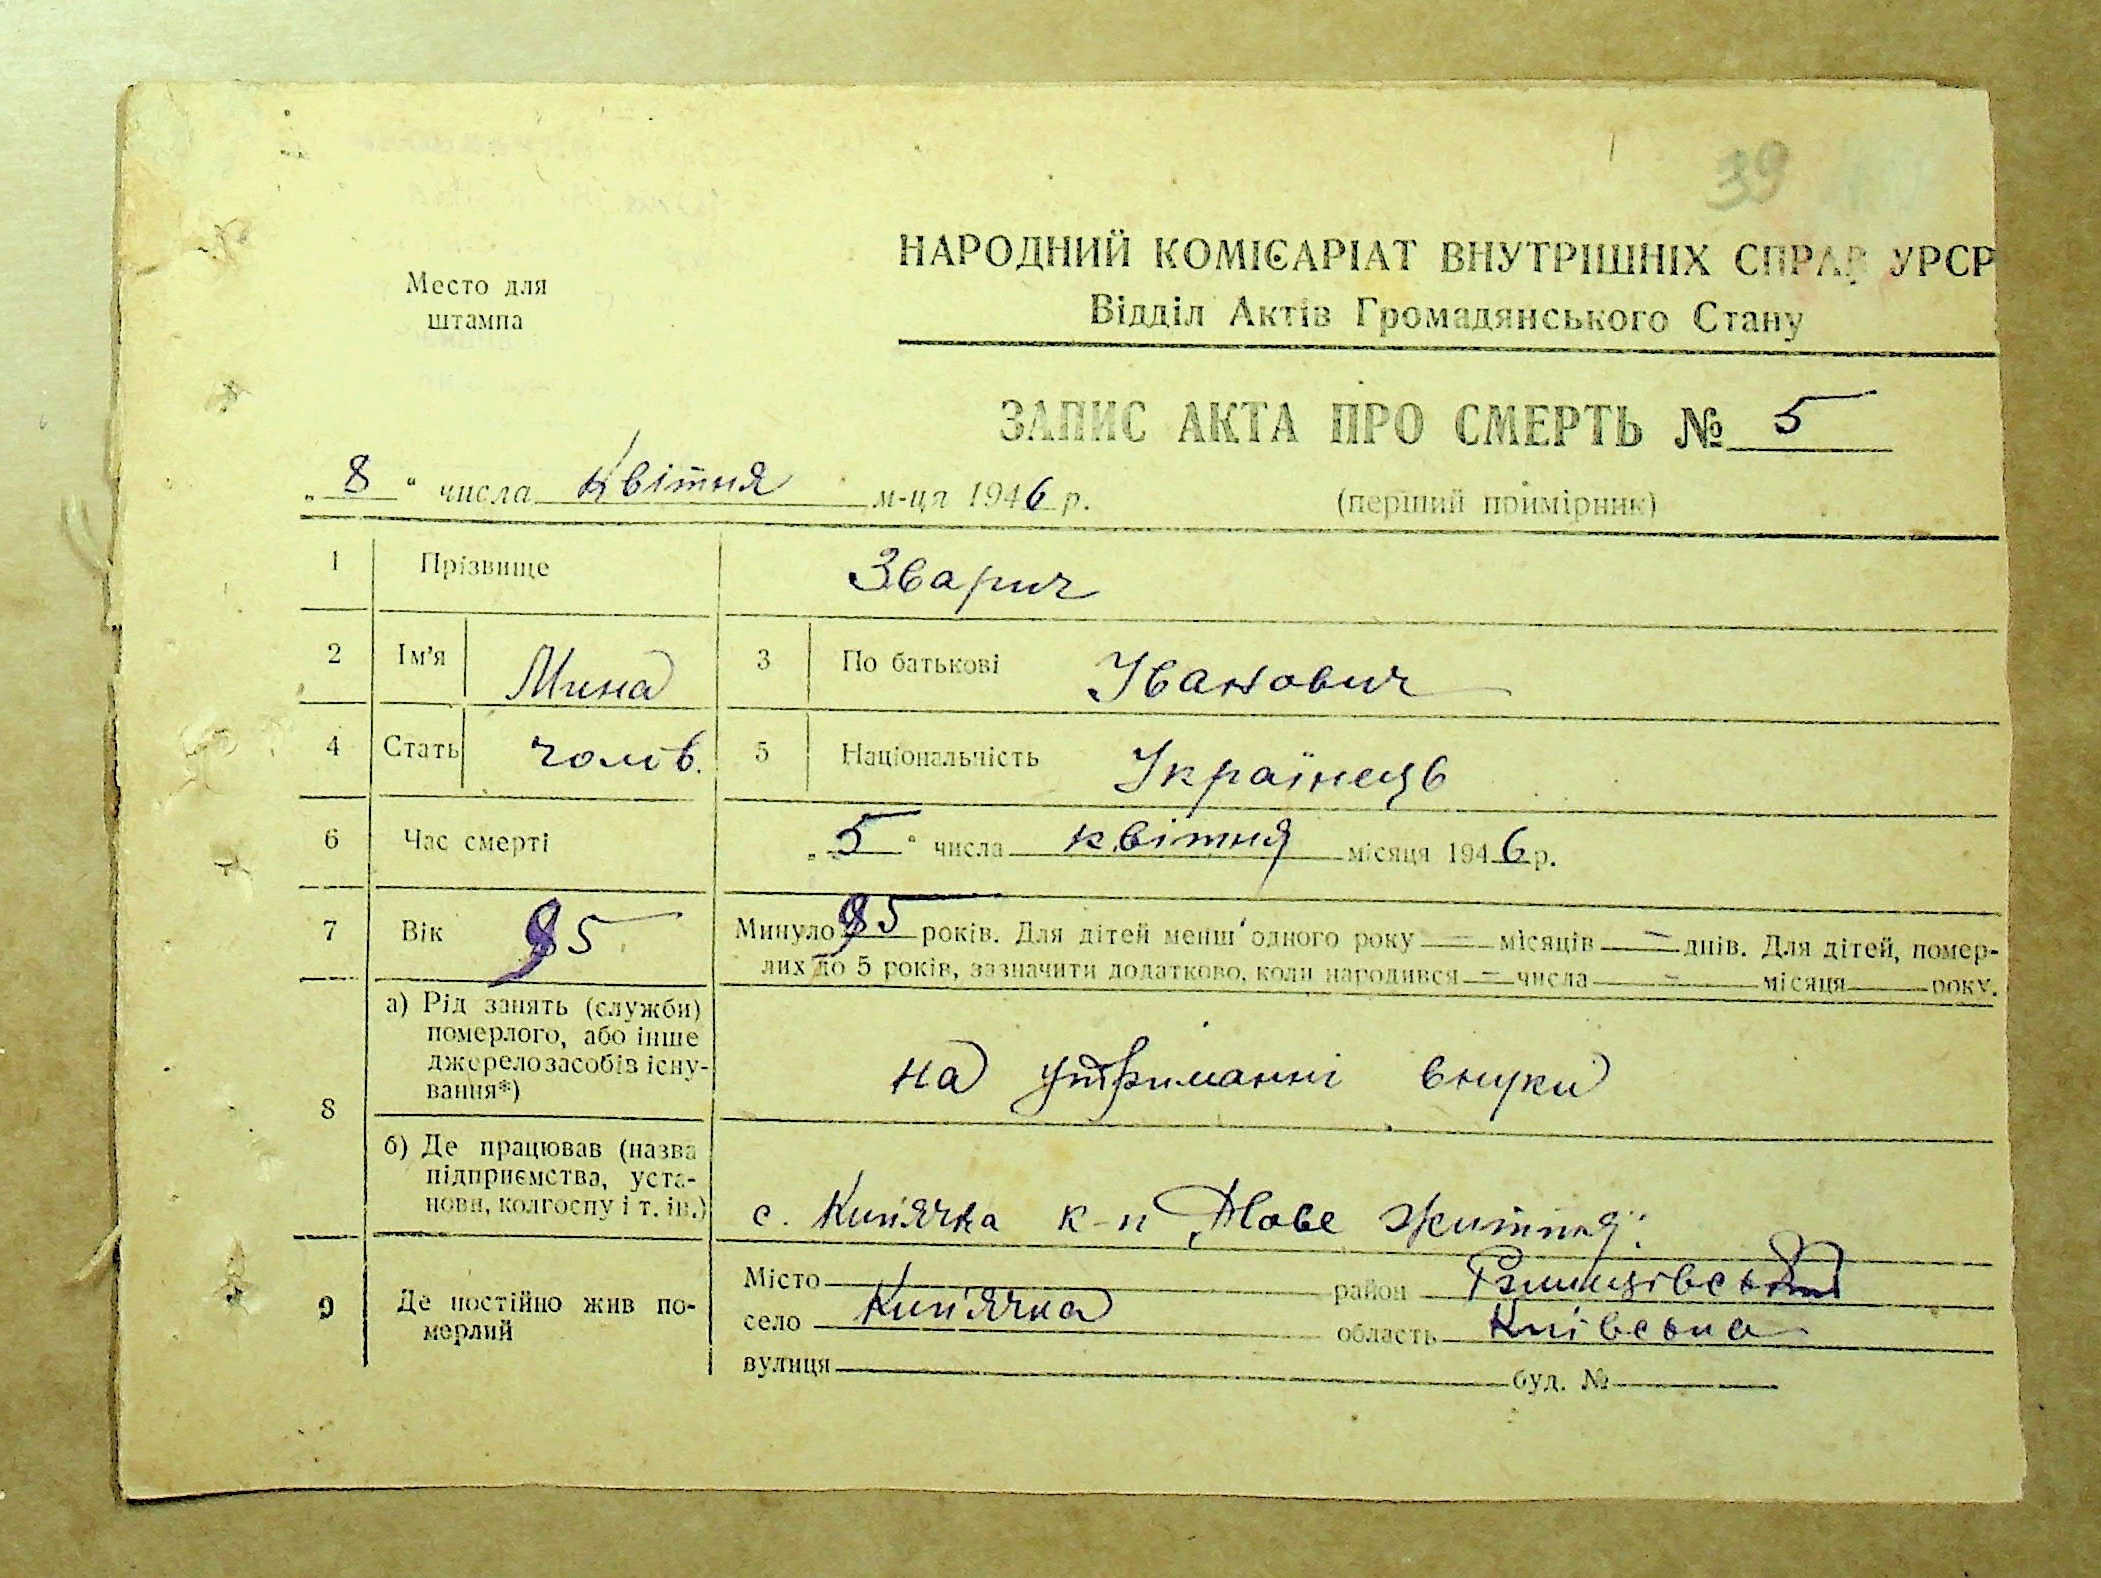 39
Место для
штампа
НАРОДНИЙ КОМІСАРІАТ ВНУТРІШНІХ СПРАВ УРСР
Відділ Актів Громадянського Стану
ЗАПИС АКТА ПРО СМЕРТЬ № 5
„ 8 “ числа Квітня м-ця 1946 р.
(перший примірник)
1 Прізвище Зварич
2 Ім'я Мина 3 По батькові Іванович
4 Стать чолов. 5 Національність Українець
6 Час смерті „ 5 “ числа квітня місяця 1946 р.
7 Вік 95 Минуло 95 років. Для дітей менш' одного року — місяців — днів. Для дітей, помер-
лих до 5 років, зазначити додатково, коли народився — числа — місяця — року.
8 а) Рід занять (служби)
померлого, або інше
джерело засобів існу-
вання*)
на утриманні внуки
б) Де працював (назва
підприємства, уста-
нови, колгоспу і т. ін.)
с. Кип'ячка к-п „Нове життя".
9 Де постійно жив по-
мерлий
Місто район Ржищівський
село Кип'ячка область Київська
вулиця буд. №